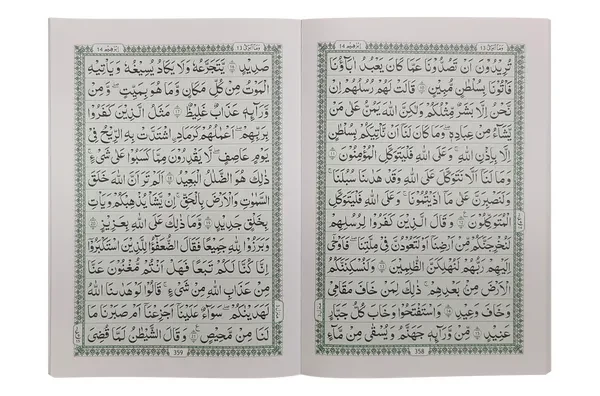 وَمَآ اُبَرِّئُ 13
اِبْرٰهِيْم 14
تُرِيْدُوْنَ اَنْ تَصُدُّوْنَا عَمَّا كَانَ يَعْبُدُ اٰبَآؤُنَا
فَاْتُوْنَا بِسُلْطٰنٍ مُّبِيْنٍ ۝ قَالَتْ لَهُمْ رُسُلُهُمْ اِنْ
نَّحْنُ اِلَّا بَشَرٌ مِّثْلُكُمْ وَلٰكِنَّ اللّٰهَ يَمُنُّ عَلٰى مَنْ
يَّشَآءُ مِنْ عِبَادِهٖ ؕ وَمَا كَانَ لَنَآ اَنْ نَّاْتِيَكُمْ بِسُلْطٰنٍ
اِلَّا بِاِذْنِ اللّٰهِ ؕ وَعَلَى اللّٰهِ فَلْيَتَوَكَّلِ الْمُؤْمِنُوْنَ ۝
وَمَا لَنَآ اَلَّا نَتَوَكَّلَ عَلَى اللّٰهِ وَقَدْ هَدٰىنَا سُبُلَنَا ؕ
وَلَنَصْبِرَنَّ عَلٰى مَآ اٰذَيْتُمُوْنَا ؕ وَعَلَى اللّٰهِ فَلْيَتَوَكَّلِ
الْمُتَوَكِّلُوْنَ ۝ وَقَالَ الَّذِيْنَ كَفَرُوْا لِرُسُلِهِمْ
لَنُخْرِجَنَّكُمْ مِّنْ اَرْضِنَآ اَوْ لَتَعُوْدُنَّ فِيْ مِلَّتِنَا ؕ فَاَوْحٰٓى
اِلَيْهِمْ رَبُّهُمْ لَنُهْلِكَنَّ الظّٰلِمِيْنَ ۝ وَلَنُسْكِنَنَّكُمُ
الْاَرْضَ مِنْ بَعْدِهِمْ ؕ ذٰلِكَ لِمَنْ خَافَ مَقَامِيْ
وَخَافَ وَعِيْدِ ۝ وَاسْتَفْتَحُوْا وَخَابَ كُلُّ جَبَّارٍ
عَنِيْدٍ ۝ مِّنْ وَّرَآئِهٖ جَهَنَّمُ وَيُسْقٰى مِنْ مَّآءٍ
358
وَمَآ اُبَرِّئُ 13
اِبْرٰهِيْم 14
صَدِيْدٍ ۝ يَّتَجَرَّعُهٗ وَلَا يَكَادُ يُسِيْغُهٗ وَيَاْتِيْهِ
الْمَوْتُ مِنْ كُلِّ مَكَانٍ وَّمَا هُوَ بِمَيِّتٍ ؕ وَمِنْ
وَّرَآئِهٖ عَذَابٌ غَلِيْظٌ ۝ مَثَلُ الَّذِيْنَ كَفَرُوْا
بِرَبِّهِمْ اَعْمَالُهُمْ كَرَمَادِ ۣاشْتَدَّتْ بِهِ الرِّيْحُ فِيْ
يَوْمٍ عَاصِفٍ ؕ لَا يَقْدِرُوْنَ مِمَّا كَسَبُوْا عَلٰى شَيْءٍ ؕ
ذٰلِكَ هُوَ الضَّلٰلُ الْبَعِيْدُ ۝ اَلَمْ تَرَ اَنَّ اللّٰهَ خَلَقَ
السَّمٰوٰتِ وَالْاَرْضَ بِالْحَقِّ ؕ اِنْ يَّشَاْ يُذْهِبْكُمْ وَيَاْتِ
بِخَلْقٍ جَدِيْدٍ ۝ وَّمَا ذٰلِكَ عَلَى اللّٰهِ بِعَزِيْزٍ ۝
وَبَرَزُوْا لِلّٰهِ جَمِيْعًا فَقَالَ الضُّعَفٰٓؤُا لِلَّذِيْنَ اسْتَكْبَرُوْٓا
اِنَّا كُنَّا لَكُمْ تَبَعًا فَهَلْ اَنْتُمْ مُّغْنُوْنَ عَنَّا
مِنْ عَذَابِ اللّٰهِ مِنْ شَيْءٍ ؕ قَالُوْا لَوْ هَدٰىنَا اللّٰهُ
لَهَدَيْنٰكُمْ ؕ سَوَآءٌ عَلَيْنَآ اَجَزِعْنَآ اَمْ صَبَرْنَا مَا
لَنَا مِنْ مَّحِيْصٍ ۝ وَقَالَ الشَّيْطٰنُ لَمَّا قُضِيَ
359